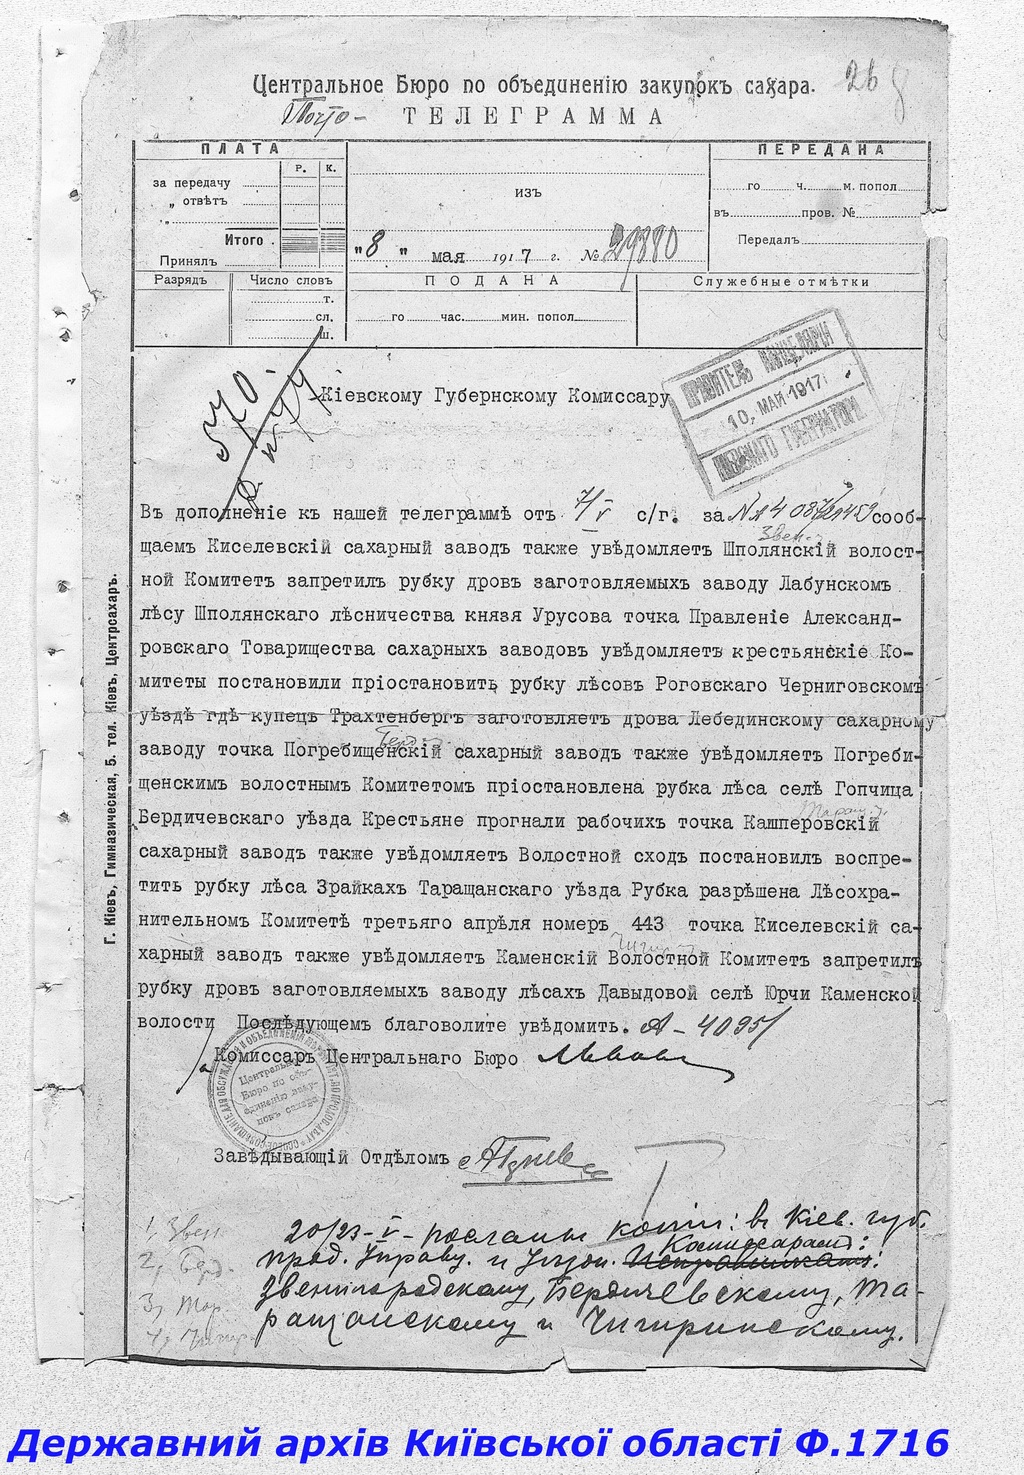 Центральное Бюро по объединенію закупокъ сахара.
26
Почто-ТЕЛЕГРАММА
ПЛАТА
Р. К.
за передачу
„ отвѣтъ
„
Итого
Принялъ
изъ
"8" мая 1917 г. № 29880
ПЕРЕДАНА
го ч. м. попол
въ пров. №
Передалъ
Разрядъ
Число словъ
т.
сл.
ш.
ПОДАНА
го час. мин. попол
Служебныя отмѣтки
ПРАВИТЕЛЬ КАНЦЕЛЯРІИ
10, МАЙ 1917
КІЕВСКАГО ГУБЕРНАТОРА
570
Кіевскому Губернскому Комиссару
Въ дополненіе къ нашей телеграммѣ отъ 7/V с/г. за сооб-
Звен.
щаемъ Киселевскій сахарный заводъ также увѣдомляетъ Шполянскій волост-
ной Комитетъ запретилъ рубку дровъ заготовляемыхъ заводу Лабунскомъ
лѣсу Шполянскаго лѣсничества князя Урусова точка Правленіе Александ-
ровскаго Товарищества сахарныхъ заводовъ увѣдомляетъ крестьянскіе Ко-
митеты постановили пріостановить рубку лѣсовъ Роговскаго Черниговскомъ
уѣздѣ гдѣ купецъ Трахтенбергъ заготовляетъ дрова Лебединскому сахарному
Берд.
заводу точка Погребищенскій сахарный заводъ также увѣдомляетъ Погреби-
щенскимъ волостнымъ Комитетомъ пріостановлена рубка лѣса селѣ Гопчица
Таращ. у.
Бердичевскаго уѣзда Крестьяне прогнали рабочихъ точка Кашперовскій
сахарный заводъ также увѣдомляетъ Волостной сходъ постановилъ воспре-
тить рубку лѣса Зрайкахъ Таращанскаго уѣзда Рубка разрѣшена Лѣсохра-
нительномъ Комитетѣ третьяго апрѣля номеръ 443 точка Киселевскій са-
харный заводъ также увѣдомляетъ Каменскій Волостной Комитетъ запретилъ
рубку дровъ заготовляемыхъ заводу лѣсахъ Давыдовой селѣ Юрчи Каменской
волости Послѣдующемъ благоволите увѣдомить. А-40951
Комиссаръ Центральнаго Бюро
Центральное
Бюро по объ-
единенію заку-
покъ сахара
Завѣдывающій Отдѣломъ
20/23-V- посланы копіи: въ Кіев. губ.
Комиссарамъ:
прод. Управу. и Уѣздн. Исправникамъ:
Звенигородскому, Бердичевскому, Та-
ращанскому и Чигиринскому.
1, Звен.
2, Берд.
3, Тар.
4, Чигир.
Г. Кіевъ, Гимназическая, 5. тел. Кіевъ, Центрсахаръ.
Державний архів Київської області Ф.1716